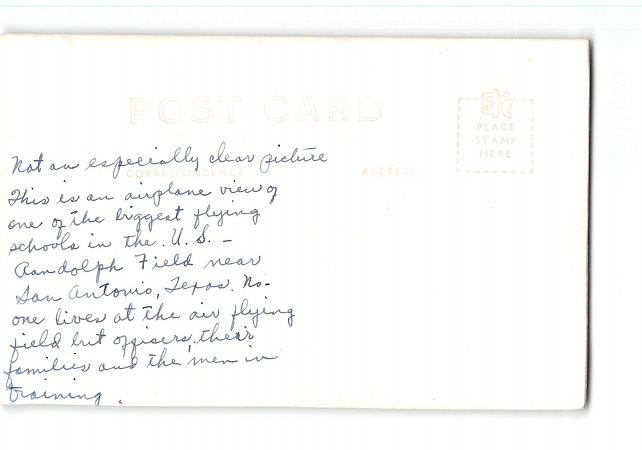 POST CARD
EKC
PLACE
STAMP
HERE
CORRESPONDENCE
ADDRESS
Not an especially clear picture
This is an airplane view of
one of the biggest flying
schools in the U.S. –
Randolph Field near
San Antonio, Texas. No-
one lives at the air flying
field but officers, their
families and the men in
training.